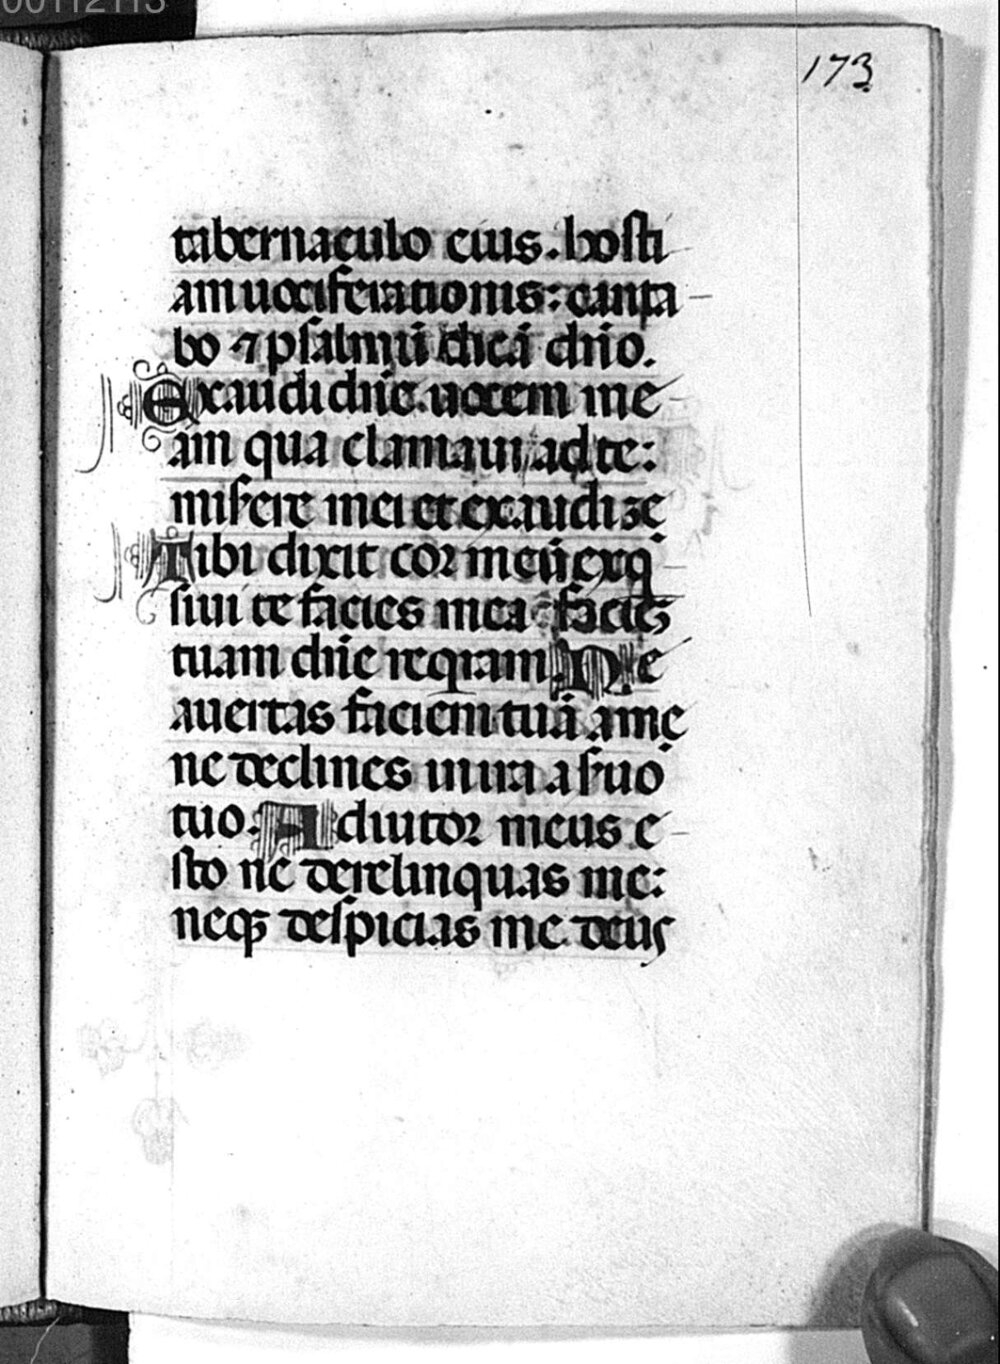 00112113
173
tabernaculo eius. hosti
am uociferationis: canta
bo ⁊ psalmū dicā dño.
Exaudi dñe. uocem me
am qua clamaui ad te:
miserere mei et exaudi me
Tibi dixit cor meū exq
siui te facies mea: faciē
tuam dñe reqram. Ne
auertas faciem tuā a me
ne declines in ira a seruo
tuo. Adiutor meus e
sto ne derelinquas me:
neq despicias me deus